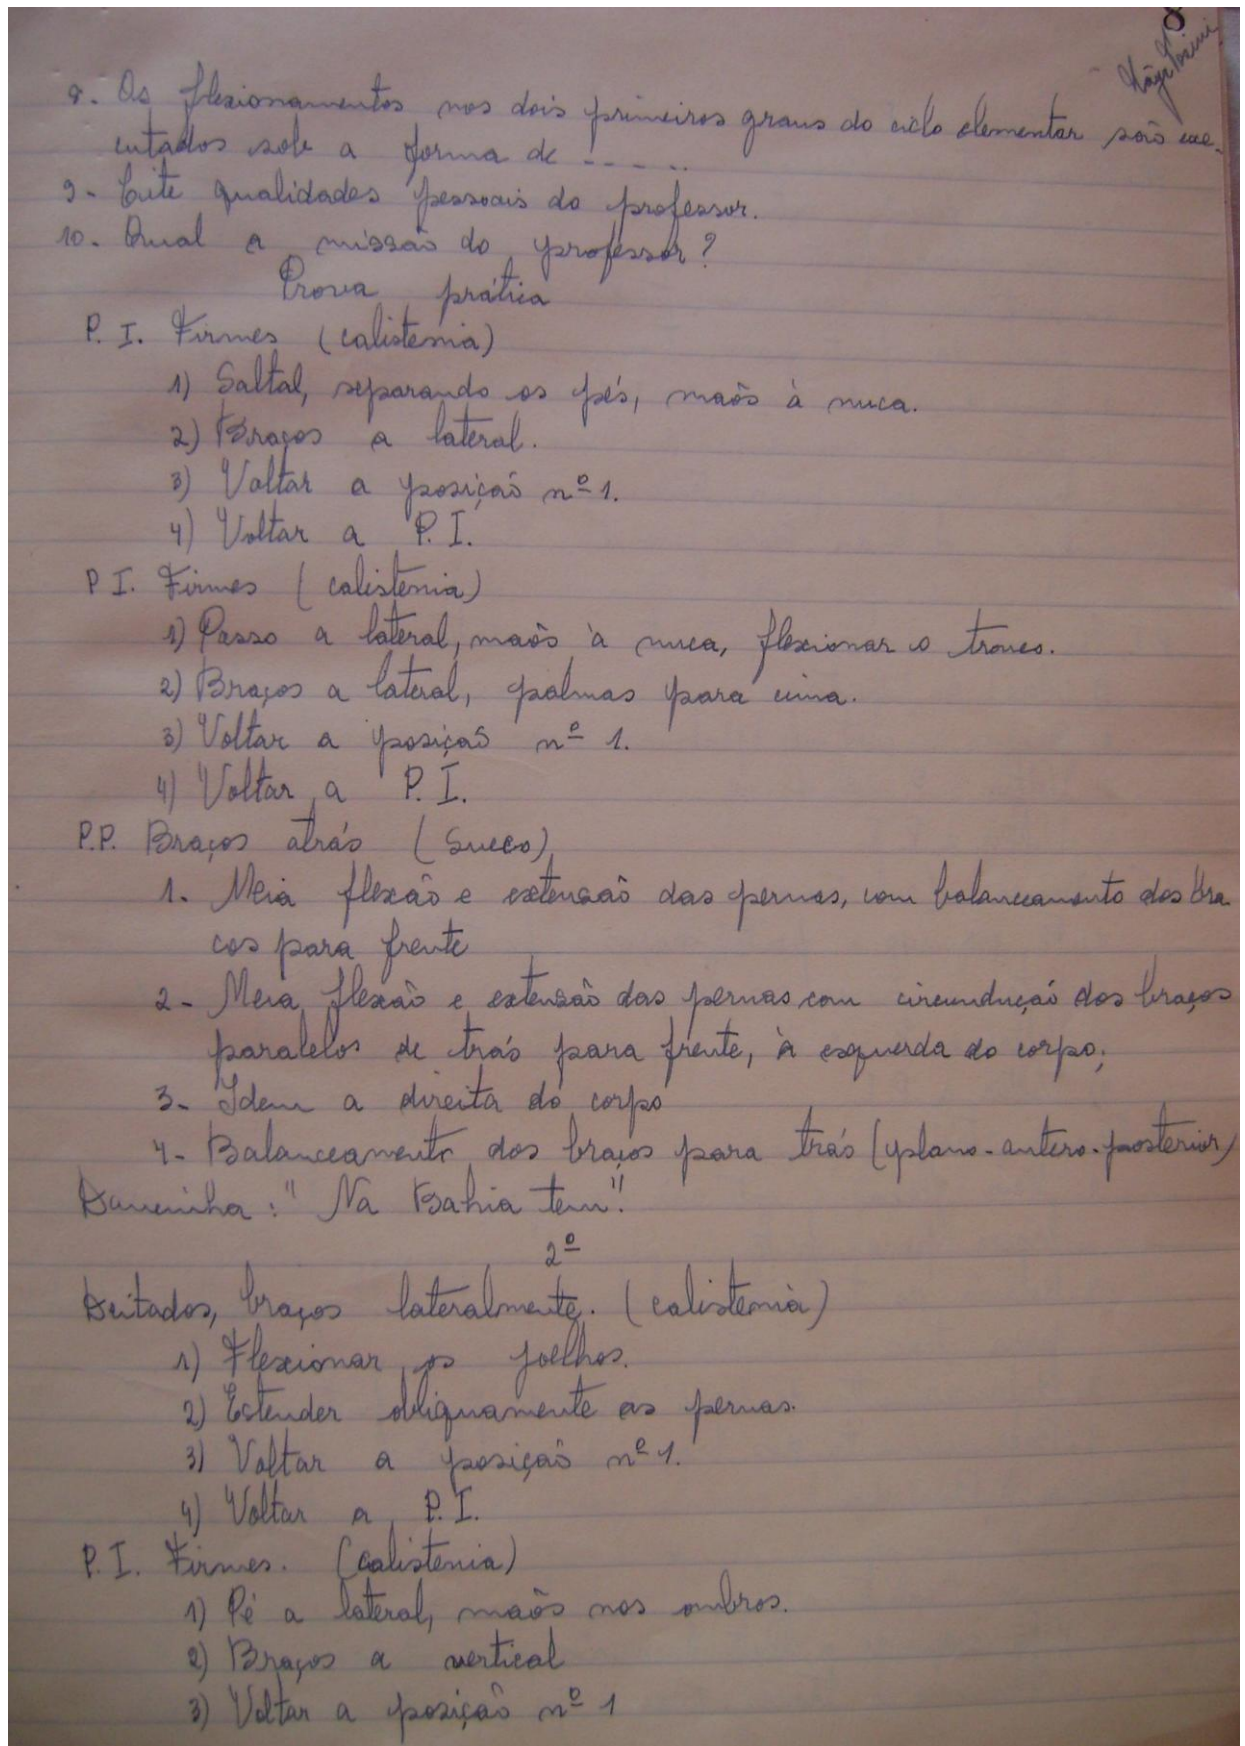 8
8. Os flexionamentos nos dois primeiros graus do ciclo elementar são exe-
cutados sob a forma de -----
9- Cite qualidades pessoais do professor.
10. Qual a missão do professor?
Prova prática
P. I. Firmes (calistenia)
1) Saltal, separando os pés, mãos à nuca.
2) Braços a lateral.
3) Voltar a posição nº 1.
4) Voltar a P. I.
P I. Firmes (calistenia)
1) Passo a lateral, mãos à nuca, flexionar o tronco.
2) Braços a lateral, palmas para cima.
3) Voltar a posição nº 1.
4) Voltar a P. I.
P.P. Braços atrás (Sueco)
1. Meia flexão e extensão das pernas, com balanceamento dos bra
cos para frente
2- Meia flexão e extensão das pernas com circundução dos braços
paralelos de trás para frente, à esquerda do corpo;
3- Idem a direita do corpo
4- Balanceamento dos braços para trás (plano-antero-posterior)
Dancinha: "Na Bahia tem".
2º
Deitados, braços lateralmente. (calistenia)
1) Flexionar os joelhos.
2) Estender obliquamente as pernas.
3) Voltar a posição nº 1.
4) Voltar a P. I.
P. I. Firmes. (calistenia)
1) Pé a lateral, mãos nos ombros.
2) Braços a vertical
3) Voltar a posição nº 1